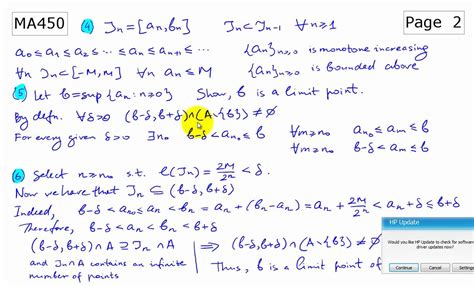 MA450
(4) Jn = [an, bn] Jn ⊂ Jn-1 ∀n≥1
Page 2
a0 ≤ a1 ≤ a2 ≤ ... ≤ an ≤ an+1 ≤ ... {an}n≥0 is monotone increasing
∀n Jn ⊂ [-M, M] ∀n an ≤ M {an}n≥0 is bounded above
(5) Let b = sup{an : n≥0} Show, b is a limit point.
By defn. ∀δ>0 (b-δ, b+δ) ∩ (A \ {b}) ≠ ∅
For every given δ>0 ∃n0 b-δ < an0 ≤ b ∀n≥n0 an0 ≤ an ≤ b
∀n≥n0 b-δ < an ≤ b
(6) Select n≥n0 s.t. l(Jn) = 2M/2^n < δ.
Now we have that Jn ⊆ (b-δ, b+δ)
Indeed, b-δ < an0 ≤ an < bn = an + (bn - an) = an + 2M/2^n < an + δ ≤ b + δ
Therefore, b-δ < an < bn < b+δ
(b-δ, b+δ) ∩ A ⊇ Jn ∩ A
⇒ (b-δ, b+δ) ∩ (A \ {b}) ≠ ∅
and Jn ∩ A contains an infinite number of points
Thus, b is a limit point of
HP Update
Would you like HP Update to check for software driver updates now?
Continue Cancel Settings